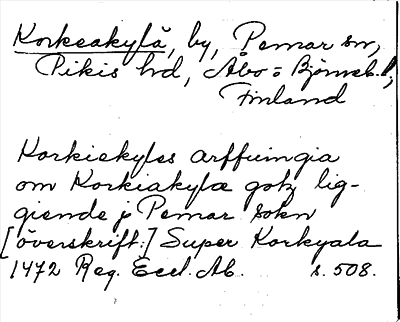 Korkeakylä, by, Pemar sn,
Pikis hd, Åbo= Björneb. l,
Finland
Korkiekyles arffuingia
om Korkiakylæ gotz lig-
giende j Pemar sokn
[överskrift:] Super Korkyala
1472 Reg. Eccl. Ab. s. 508.